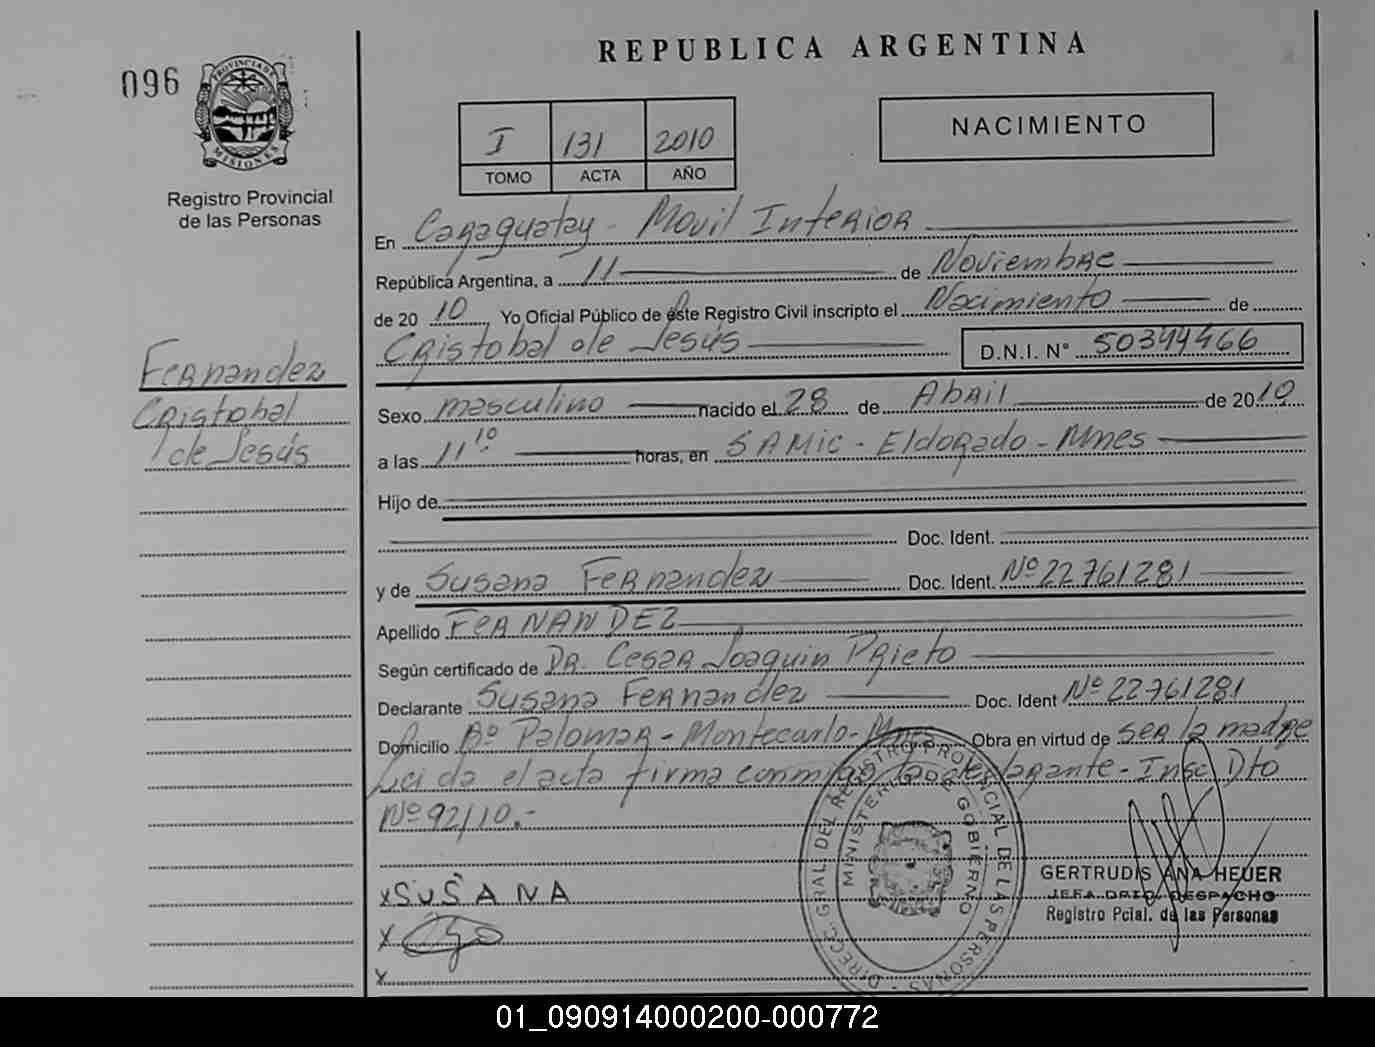 REPUBLICA ARGENTINA
096
PROVINCIA DE
MISIONES
Registro Provincial
de las Personas
I 131 2010
TOMO ACTA AÑO
NACIMIENTO
En Caraguatay - Movil Interior
República Argentina, a 11 de Noviembre
de 20 10 Yo Oficial Público de éste Registro Civil inscripto el Nacimiento de
Cristobal de Jesús D.N.I. N° 50344466
Fernandez
Cristobal
de Jesús
Sexo masculino nacido el 28 de Abril de 2010
a las 11 10 horas, en SAMIC - Eldorado - Mnes
Hijo de
Doc. Ident.
y de Susana Fernandez Doc. Ident. Nº 22761281
Apellido FERNANDEZ
Según certificado de DR. Cesar Joaquin Prieto
Declarante Susana Fernandez Doc. Ident Nº 22761281
Domicilio Bº Palomar - Montecarlo - Mnes Obra en virtud de ser la madre
Leida el acta firma conmigo la declarante - Insc Dto
Nº 92/10.-
x SUSANA
x
x
DIREC. GRAL. DEL REGISTRO PROVINCIAL DE LAS PERSONAS
MINISTERIO DE GOBIERNO
GERTRUDIS ANA HEUER
JEFA DPTO. DESPACHO
Registro Pcial. de las Personas
01_090914000200-000772